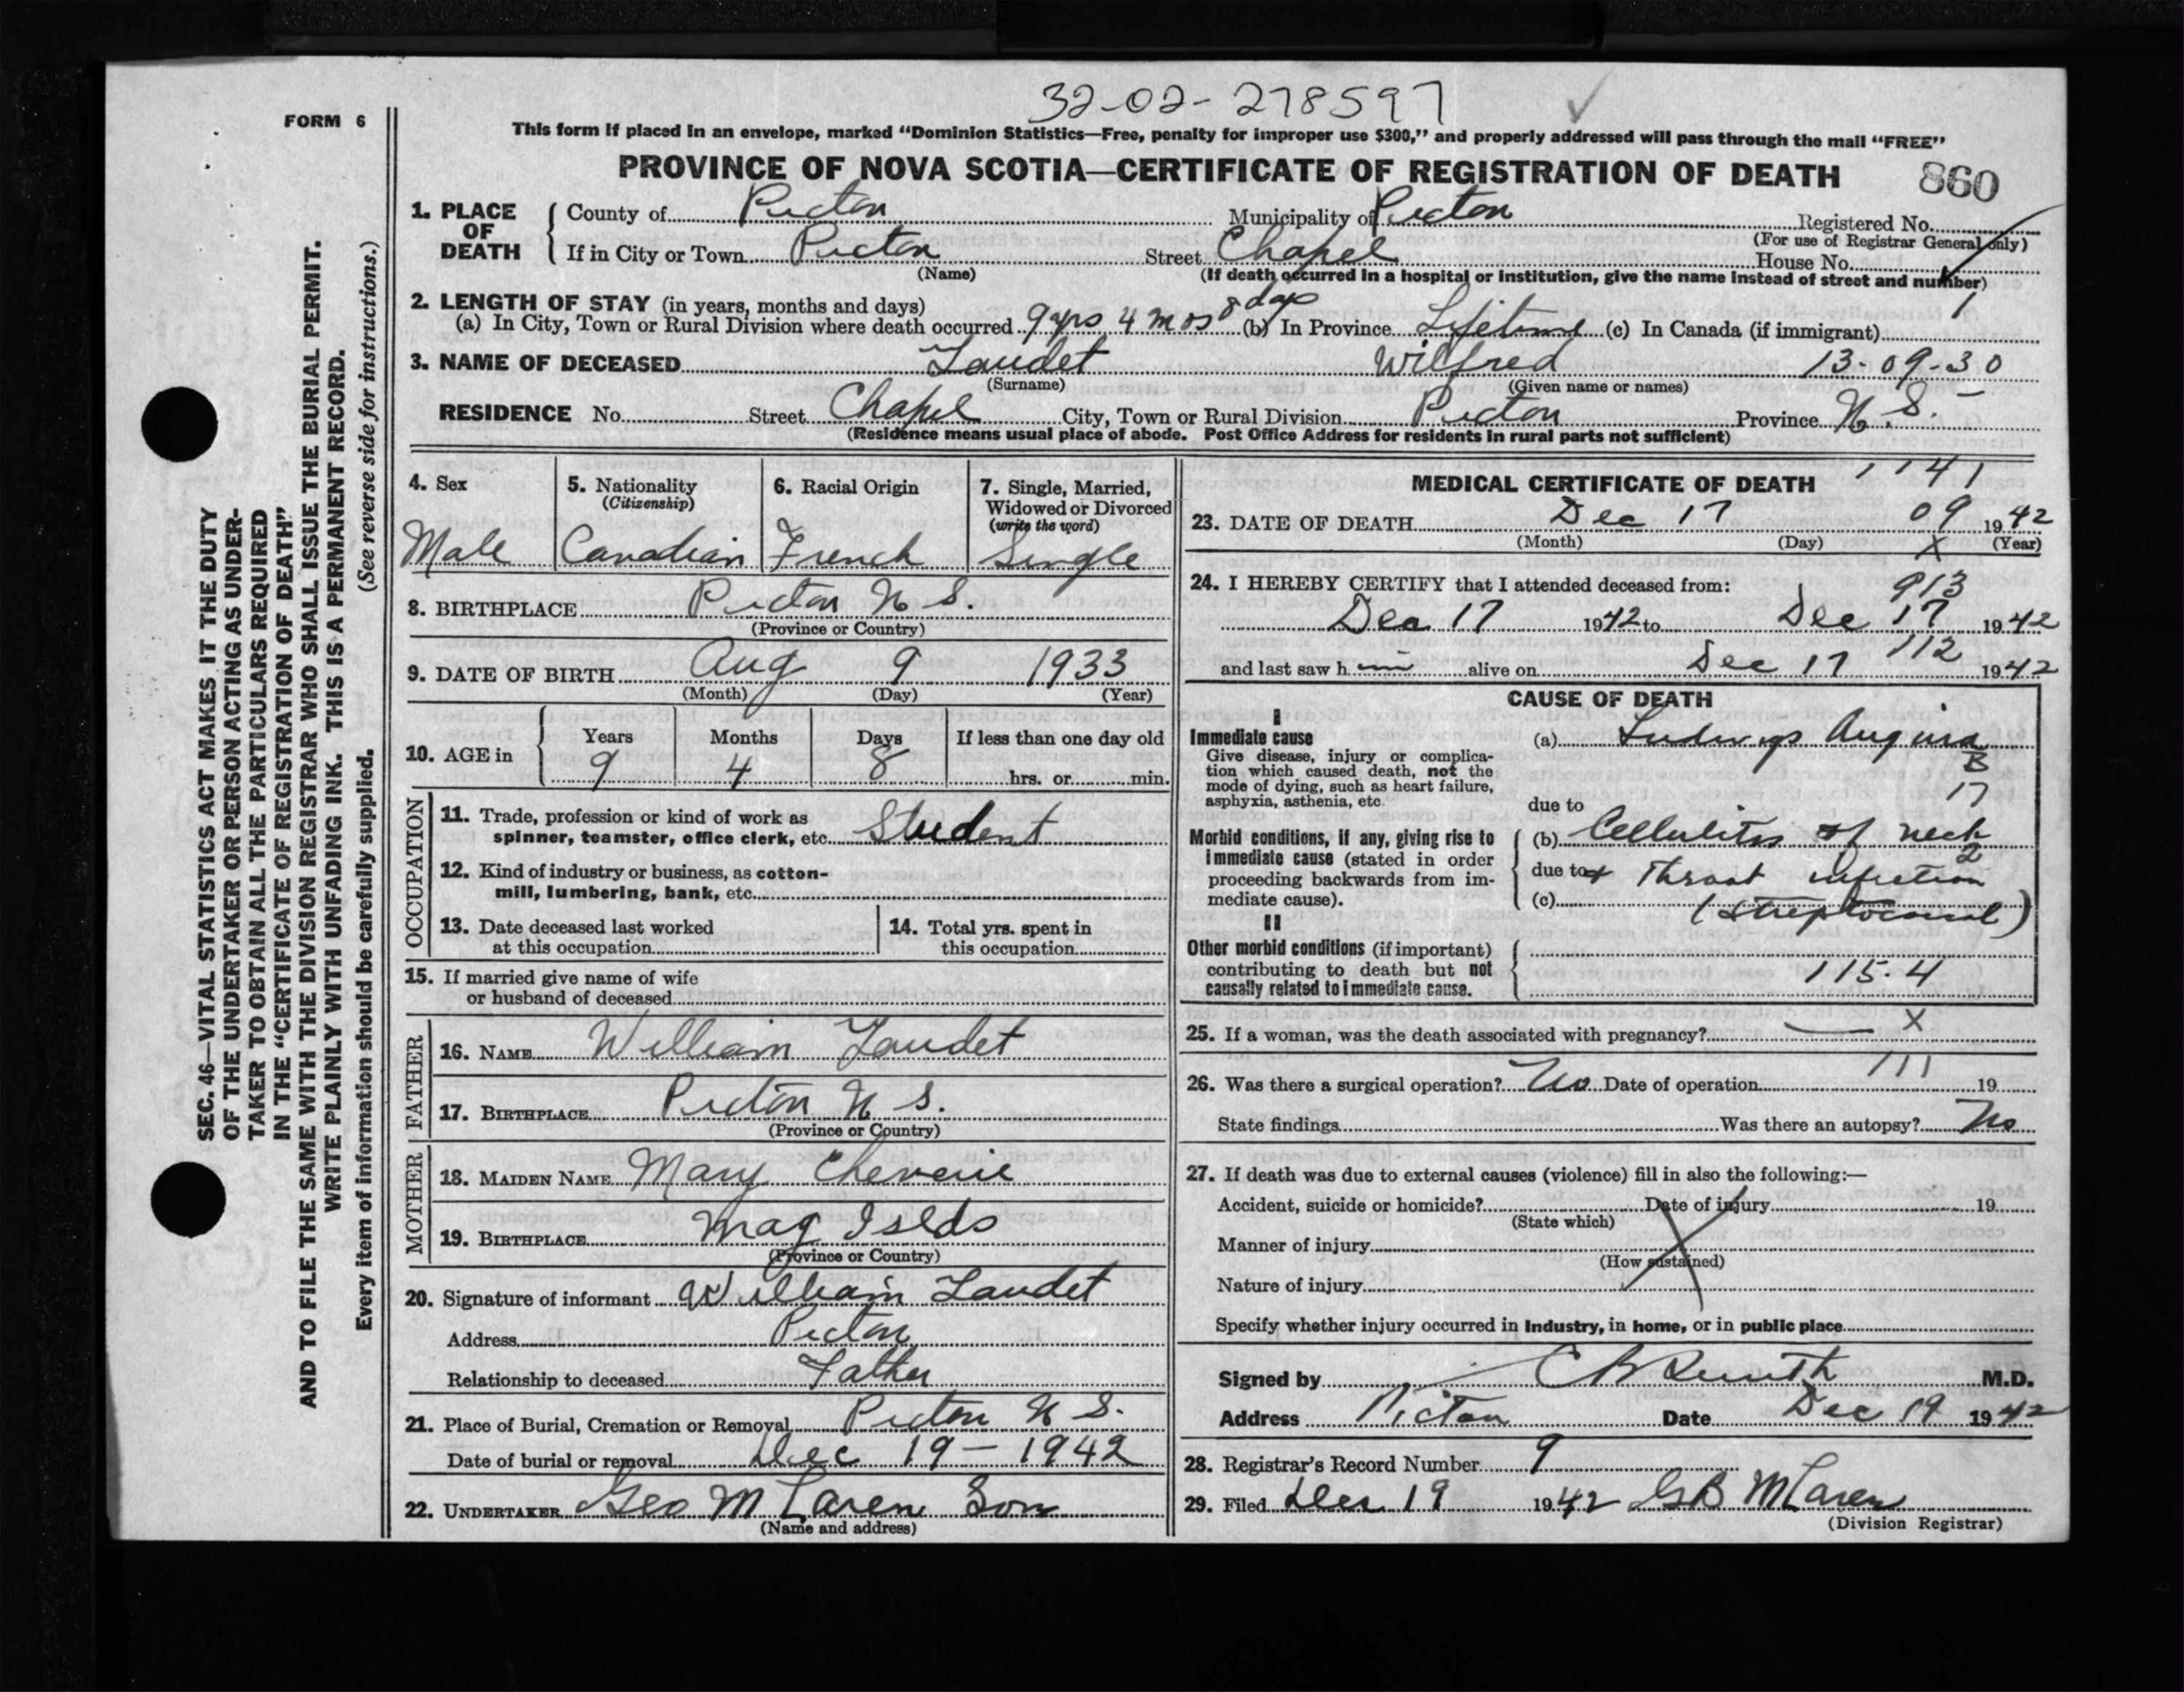 32-02-278597
FORM 6
This form if placed in an envelope, marked "Dominion Statistics—Free, penalty for improper use $300," and properly addressed will pass through the mail "FREE"
PROVINCE OF NOVA SCOTIA—CERTIFICATE OF REGISTRATION OF DEATH
860
1. PLACE OF DEATH County of Pictou Municipality of Pictou Registered No.
(For use of Registrar General only)
If in City or Town Pictou Street Chapel House No.
(Name) (If death occurred in a hospital or institution, give the name instead of street and number)
2. LENGTH OF STAY (in years, months and days) 1
(a) In City, Town or Rural Division where death occurred 9 yrs 4 mos 8 days (b) In Province Lifetime (c) In Canada (if immigrant)
3. NAME OF DECEASED Laudet Wilfred 13-09-30
(Surname) (Given name or names)
RESIDENCE No. Street Chapel City, Town or Rural Division Pictou Province N.S.
(Residence means usual place of abode. Post Office Address for residents in rural parts not sufficient)
4. Sex Male
5. Nationality (Citizenship) Canadian
6. Racial Origin French
7. Single, Married, Widowed or Divorced (write the word) Single
8. BIRTHPLACE Pictou N S.
(Province or Country)
9. DATE OF BIRTH Aug 9 1933
(Month) (Day) (Year)
10. AGE in Years 9 Months 4 Days 8 If less than one day old hrs. or min.
OCCUPATION
11. Trade, profession or kind of work as spinner, teamster, office clerk, etc. Student
12. Kind of industry or business, as cotton-mill, lumbering, bank, etc.
13. Date deceased last worked at this occupation
14. Total yrs. spent in this occupation
15. If married give name of wife or husband of deceased
FATHER
16. NAME William Laudet
17. BIRTHPLACE Pictou N S.
(Province or Country)
MOTHER
18. MAIDEN NAME Mary Cheverie
19. BIRTHPLACE Mag Islds
(Province or Country)
20. Signature of informant William Laudet
Address Pictou
Relationship to deceased Father
21. Place of Burial, Cremation or Removal Pictou N S.
Date of burial or removal Dec 19 – 1942
22. UNDERTAKER Geo McLaren Son
(Name and address)
MEDICAL CERTIFICATE OF DEATH 1141
23. DATE OF DEATH Dec 17 09 1942
(Month) (Day) X (Year)
24. I HEREBY CERTIFY that I attended deceased from: 913
Dec 17 1942 to Dec 17 1942
112
and last saw h im alive on Dec 17 1942
CAUSE OF DEATH
I
Immediate cause
Give disease, injury or complication which caused death, not the mode of dying, such as heart failure, asphyxia, asthenia, etc.
(a) Ludwigs Angina
B
17
due to
Morbid conditions, if any, giving rise to immediate cause (stated in order proceeding backwards from immediate cause).
(b) Cellulitis of neck
2
due to Throat infection
(c) (Streptococcal)
II
Other morbid conditions (if important) contributing to death but not causally related to immediate cause.
115.4
25. If a woman, was the death associated with pregnancy? — X
111
26. Was there a surgical operation? No Date of operation 19
State findings Was there an autopsy? No
27. If death was due to external causes (violence) fill in also the following:—
Accident, suicide or homicide? Date of injury 19
(State which)
Manner of injury
(How sustained)
Nature of injury
Specify whether injury occurred in Industry, in home, or in public place
Signed by M.D.
Address Pictou Date Dec 19 1942
28. Registrar's Record Number 9
29. Filed Dec 19 1942 GB McLaren
(Division Registrar)
SEC. 46—VITAL STATISTICS ACT MAKES IT THE DUTY
OF THE UNDERTAKER OR PERSON ACTING AS UNDER-
TAKER TO OBTAIN ALL THE PARTICULARS REQUIRED
IN THE "CERTIFICATE OF REGISTRATION OF DEATH"
AND TO FILE THE SAME WITH THE DIVISION REGISTRAR WHO SHALL ISSUE THE BURIAL PERMIT.
WRITE PLAINLY WITH UNFADING INK. THIS IS A PERMANENT RECORD.
Every item of information should be carefully supplied. (See reverse side for instructions.)